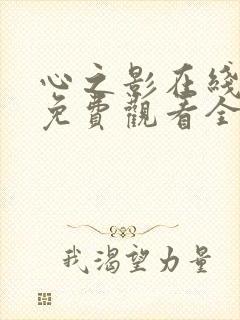 心之影在綫
免費觀看全
我渴望力量